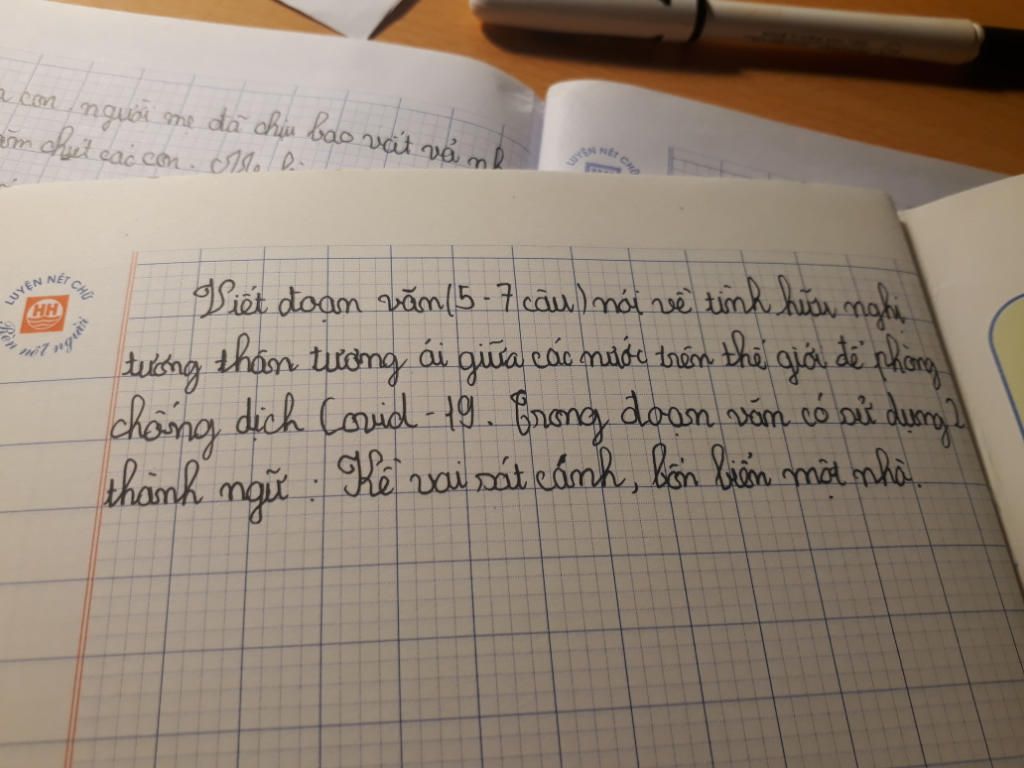 con người mẹ đã chịu bao vất vả
chút các con.
LUYỆN NÉT CHỮ
LUYỆN NÉT CHỮ
HH
Rèn nết người
Viết đoạn văn (5-7 câu) nói về tình hữu nghị,
tương thân tương ái giữa các nước trên thế giới để phòng
chống dịch Covid-19. Trong đoạn văn có sử dụng 2
thành ngữ: Kề vai sát cánh, bốn biển một nhà.